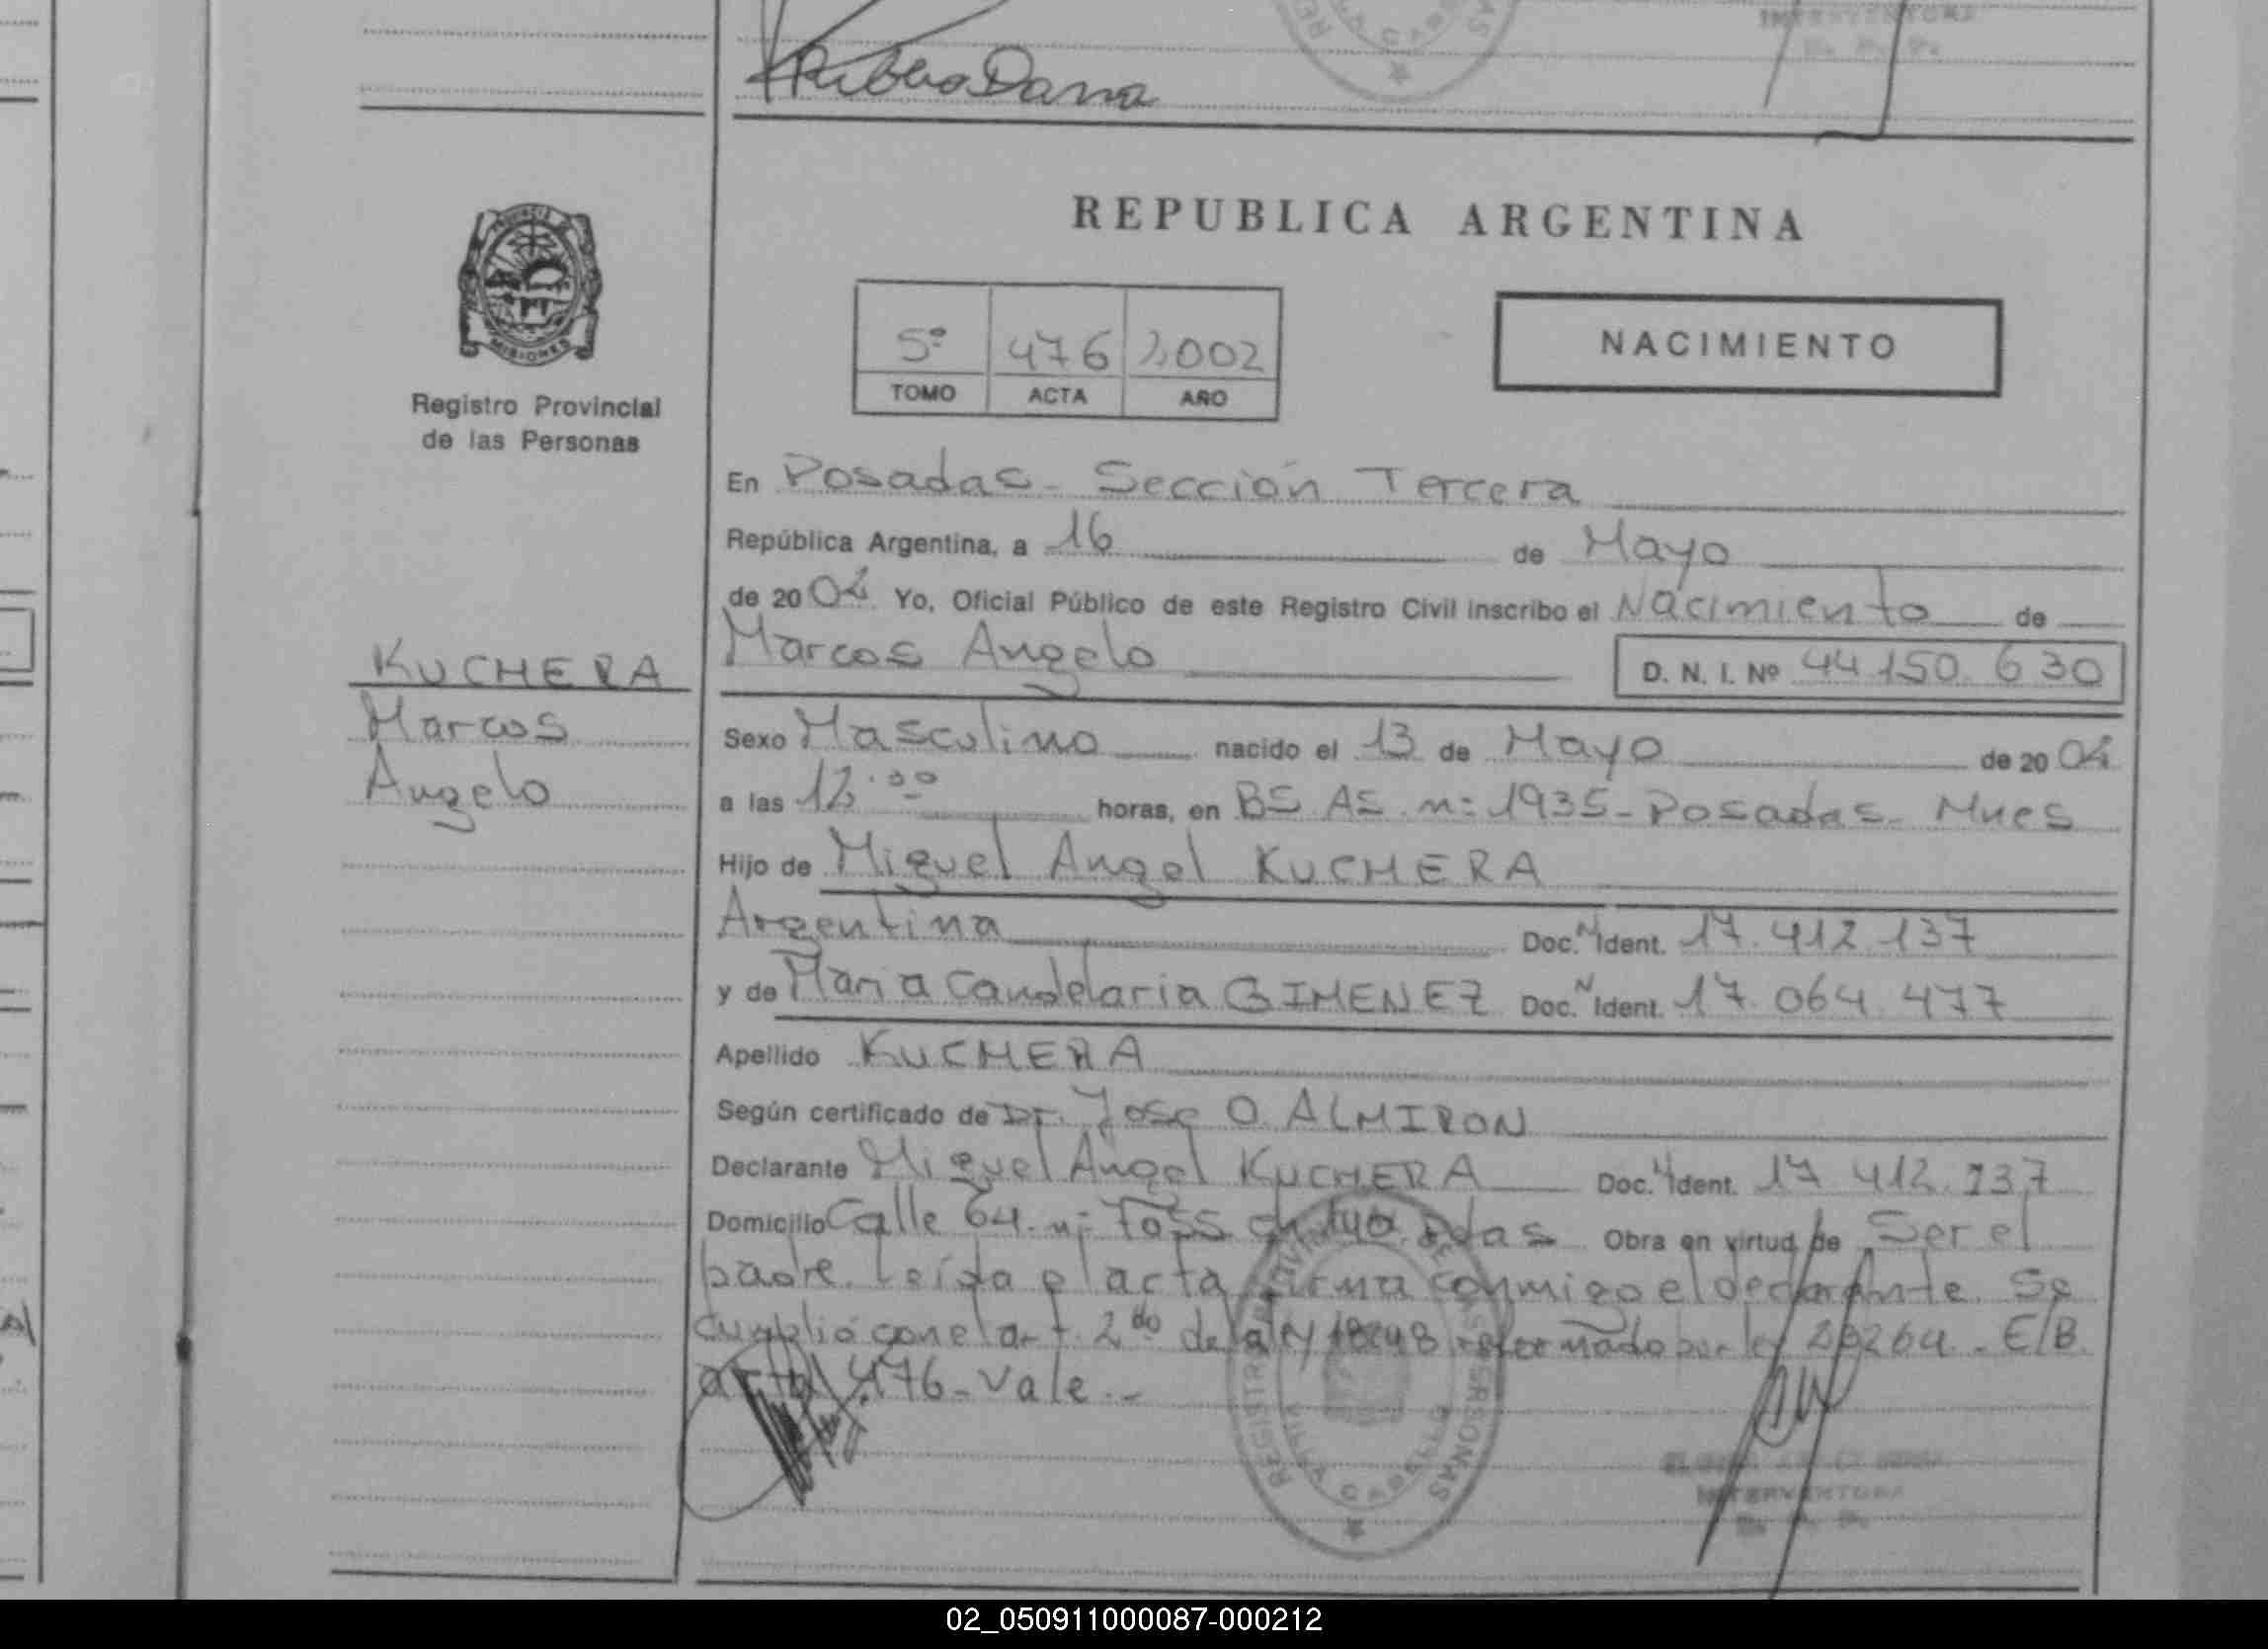 Ribero Dana
INTERVENTORA
REPUBLICA ARGENTINA
5º 476 2002
TOMO ACTA AÑO
NACIMIENTO
MISIONES
Registro Provincial
de las Personas
En Posadas - Sección Tercera
República Argentina, a 16 de Mayo
de 2002 Yo, Oficial Público de este Registro Civil inscribo el Nacimiento de
KUCHERA
Marcos Angelo D. N. I. Nº 44.150.630
Marcos
Sexo Masculino nacido el 13 de Mayo de 2002
Angelo
a las 12.00 horas, en BS AS nº 1935 - Posadas - Mnes
Hijo de Miguel Angel KUCHERA
Argentina Doc. N Ident. 17.412.137
y de Maria Candelaria GIMENEZ Doc. N Ident. 17.064.477
Apellido KUCHERA
Según certificado de Dr. Jose O. ALMIRON
Declarante Miguel Angel KUCHERA Doc. N Ident. 17.412.137
Domicilio Calle 64 nº ch 140 Pdas Obra en virtud de Ser el
padre. Leída el acta firma conmigo el declarante. Se
cumplió con el art. 2do de la ley 18248 reformado por ley 23264. E/B.
acta 476 - Vale.-
REGISTRO PROVINCIAL DE LAS PERSONAS
VILLA CABELLO
INTERVENTORA
02_050911000087-000212